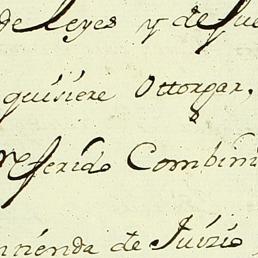 de Leyes y de fue
quisiere Ottorgar,
referido Combin
de Juizio